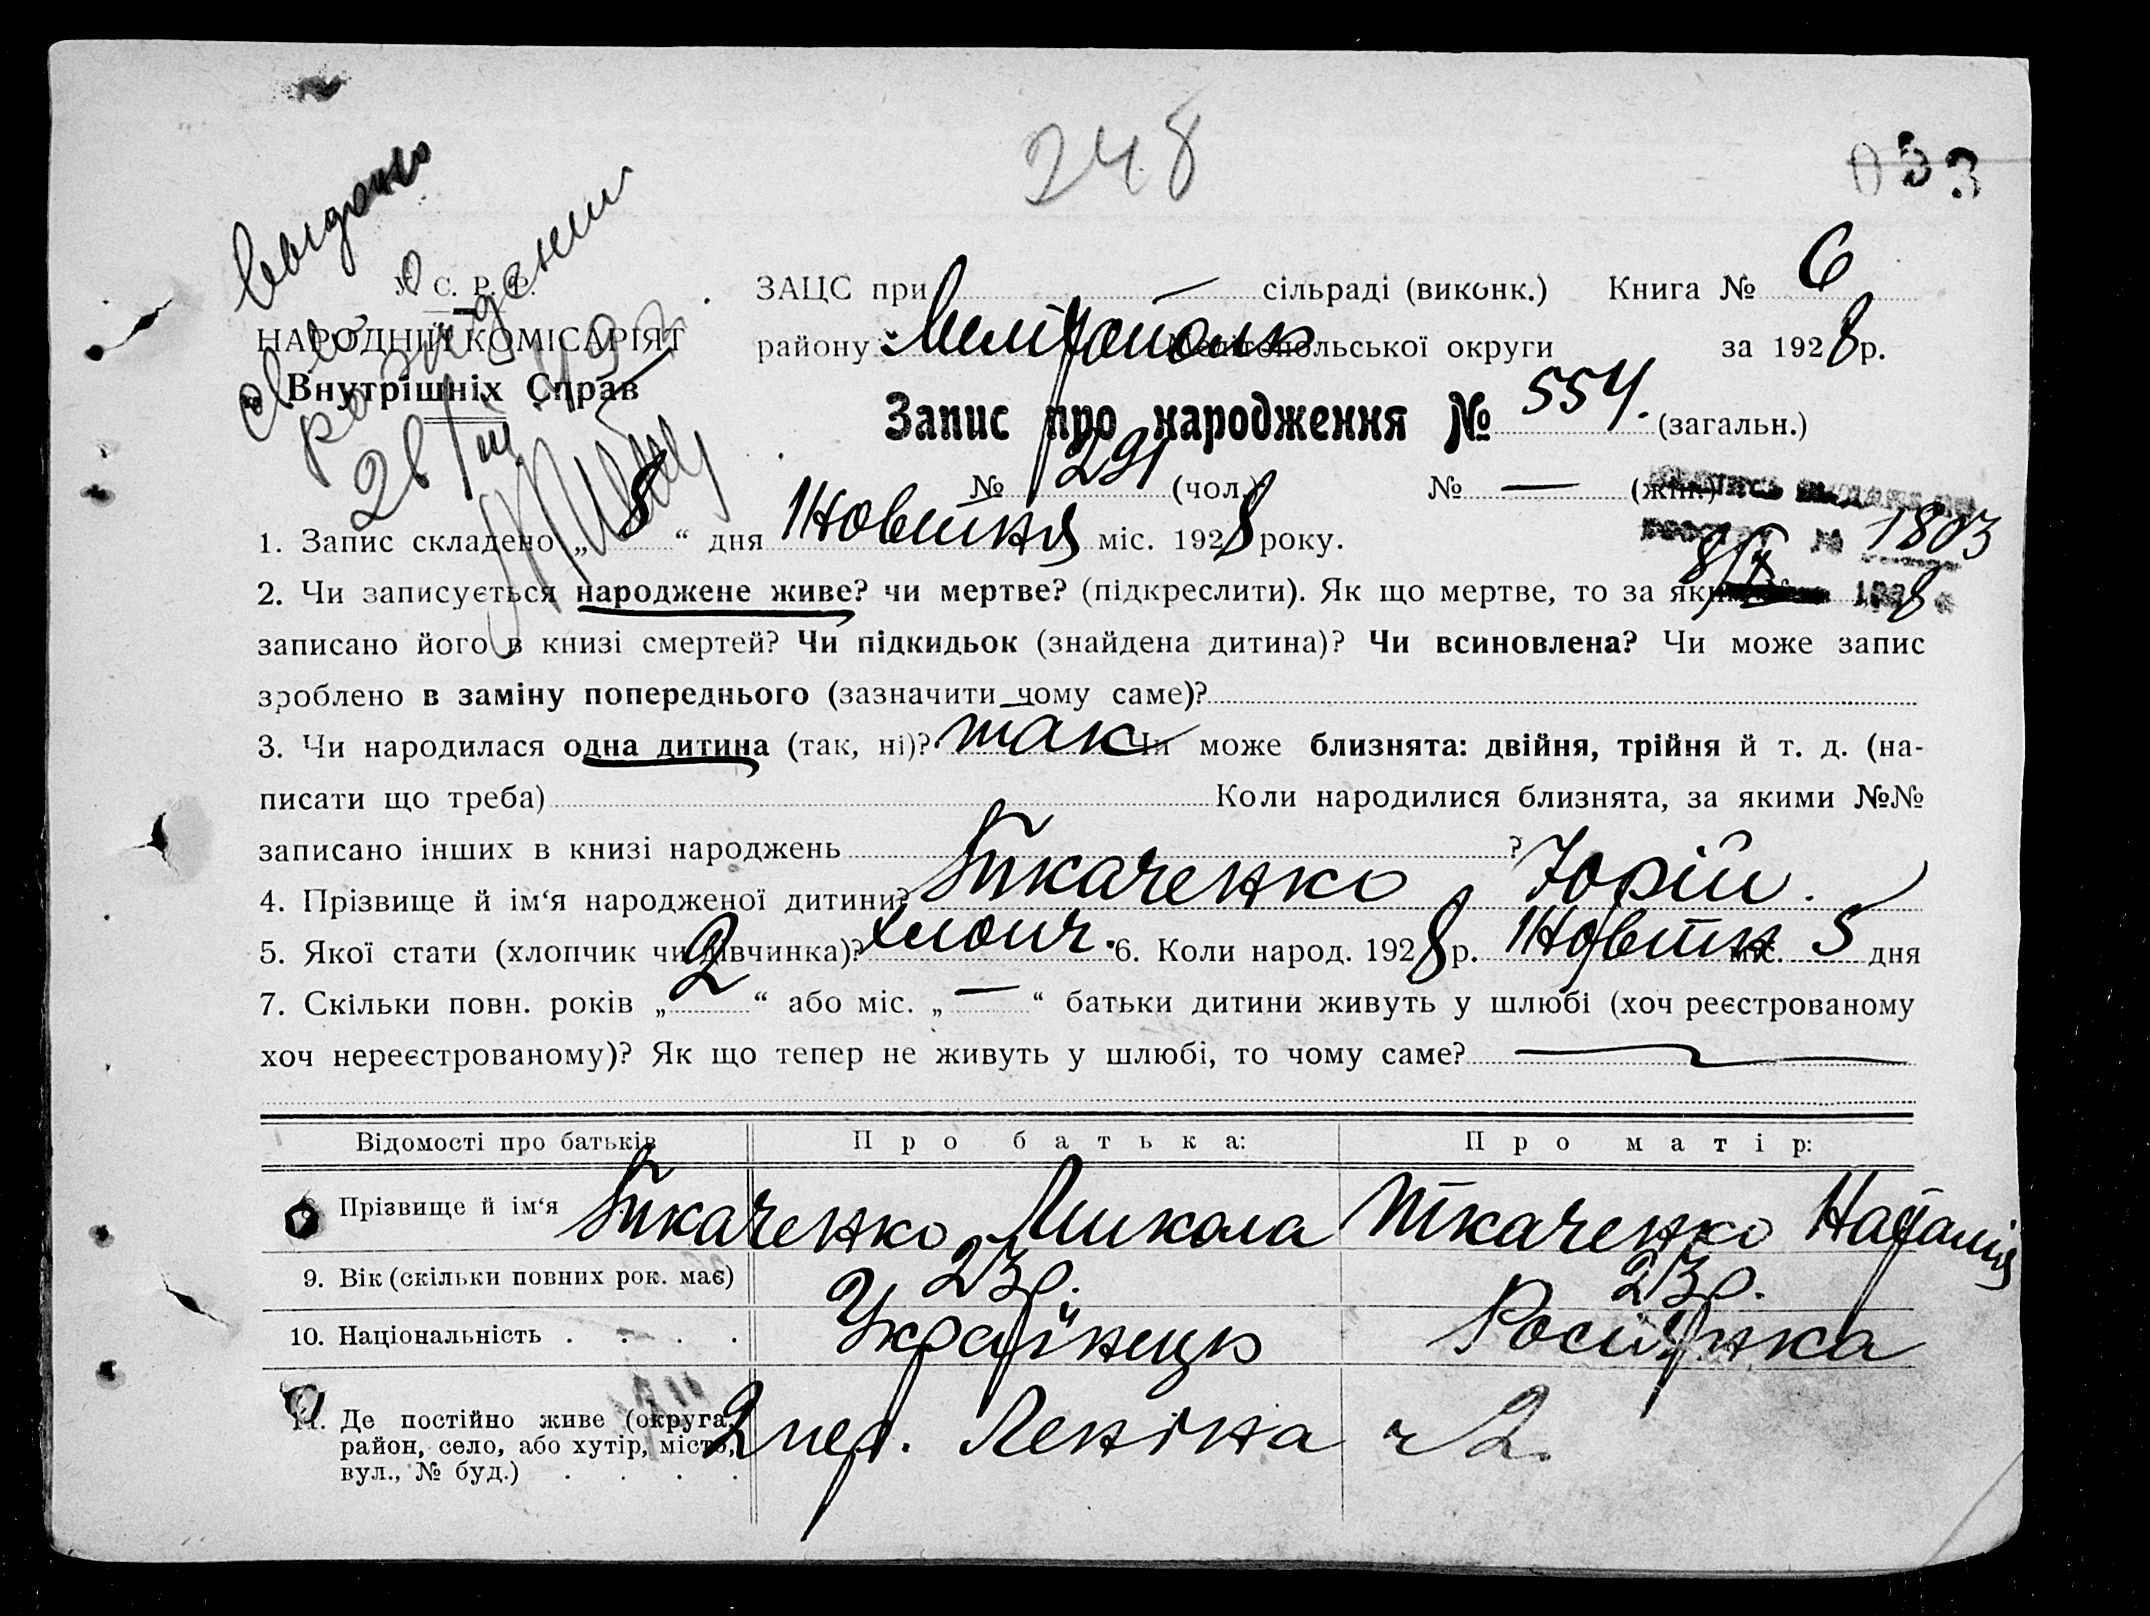 248
053
Выдано
С. Р. Р.
НАРОДНІЙ КОМІСАРІЯТ
Внутрішніх Справ
ЗАЦС при сільраді (виконк.) Книга № 6
району Мелітополь Мелітопольської округи за 1928 р.
Запис про народження № 554. (загальн.)
№ 291 (чол.) № — (жін.)
1803
1. Запис складено „ 8 “ дня Жовтня міс. 1928 року.
8/X 1928
2. Чи записується народжене живе? чи мертве? (підкреслити). Як що мертве, то за яким №
записано його в книзі смертей? Чи підкидьок (знайдена дитина)? Чи всиновлена? Чи може запис
зроблено в заміну попереднього (зазначити чому саме)?
3. Чи народилася одна дитина (так, ні)? так Чи може близнята: двійня, трійня й т. д. (на-
писати що треба) Коли народилися близнята, за якими №№
записано інших в книзі народжень ?
4. Прізвище й ім‘я народженої дитини? Ткаченко Юрій.
5. Якої стати (хлопчик чи дівчинка)? хлопч. 6. Коли народ. 1928 р. Жовтн міс. 5 дня
7. Скільки повн. років „ 2 “ або міс. „ — “ батьки дитини живуть у шлюбі (хоч реєстрованому
хоч нереєстрованому)? Як що тепер не живуть у шлюбі, то чому саме? —
Відомості про батьків Про батька: Про матір:
8. Прізвище й ім‘я Ткаченко Микола Ткаченко Наталія
9. Вік (скільки повних рок. має) 23 р. 23 р.
10. Національність . . . . Українець Росіянка
11. Де постійно живе (округа,
район, село, або хутір, місто,
вул., № буд.) . . . . 2 пер. Леніна ч 2.